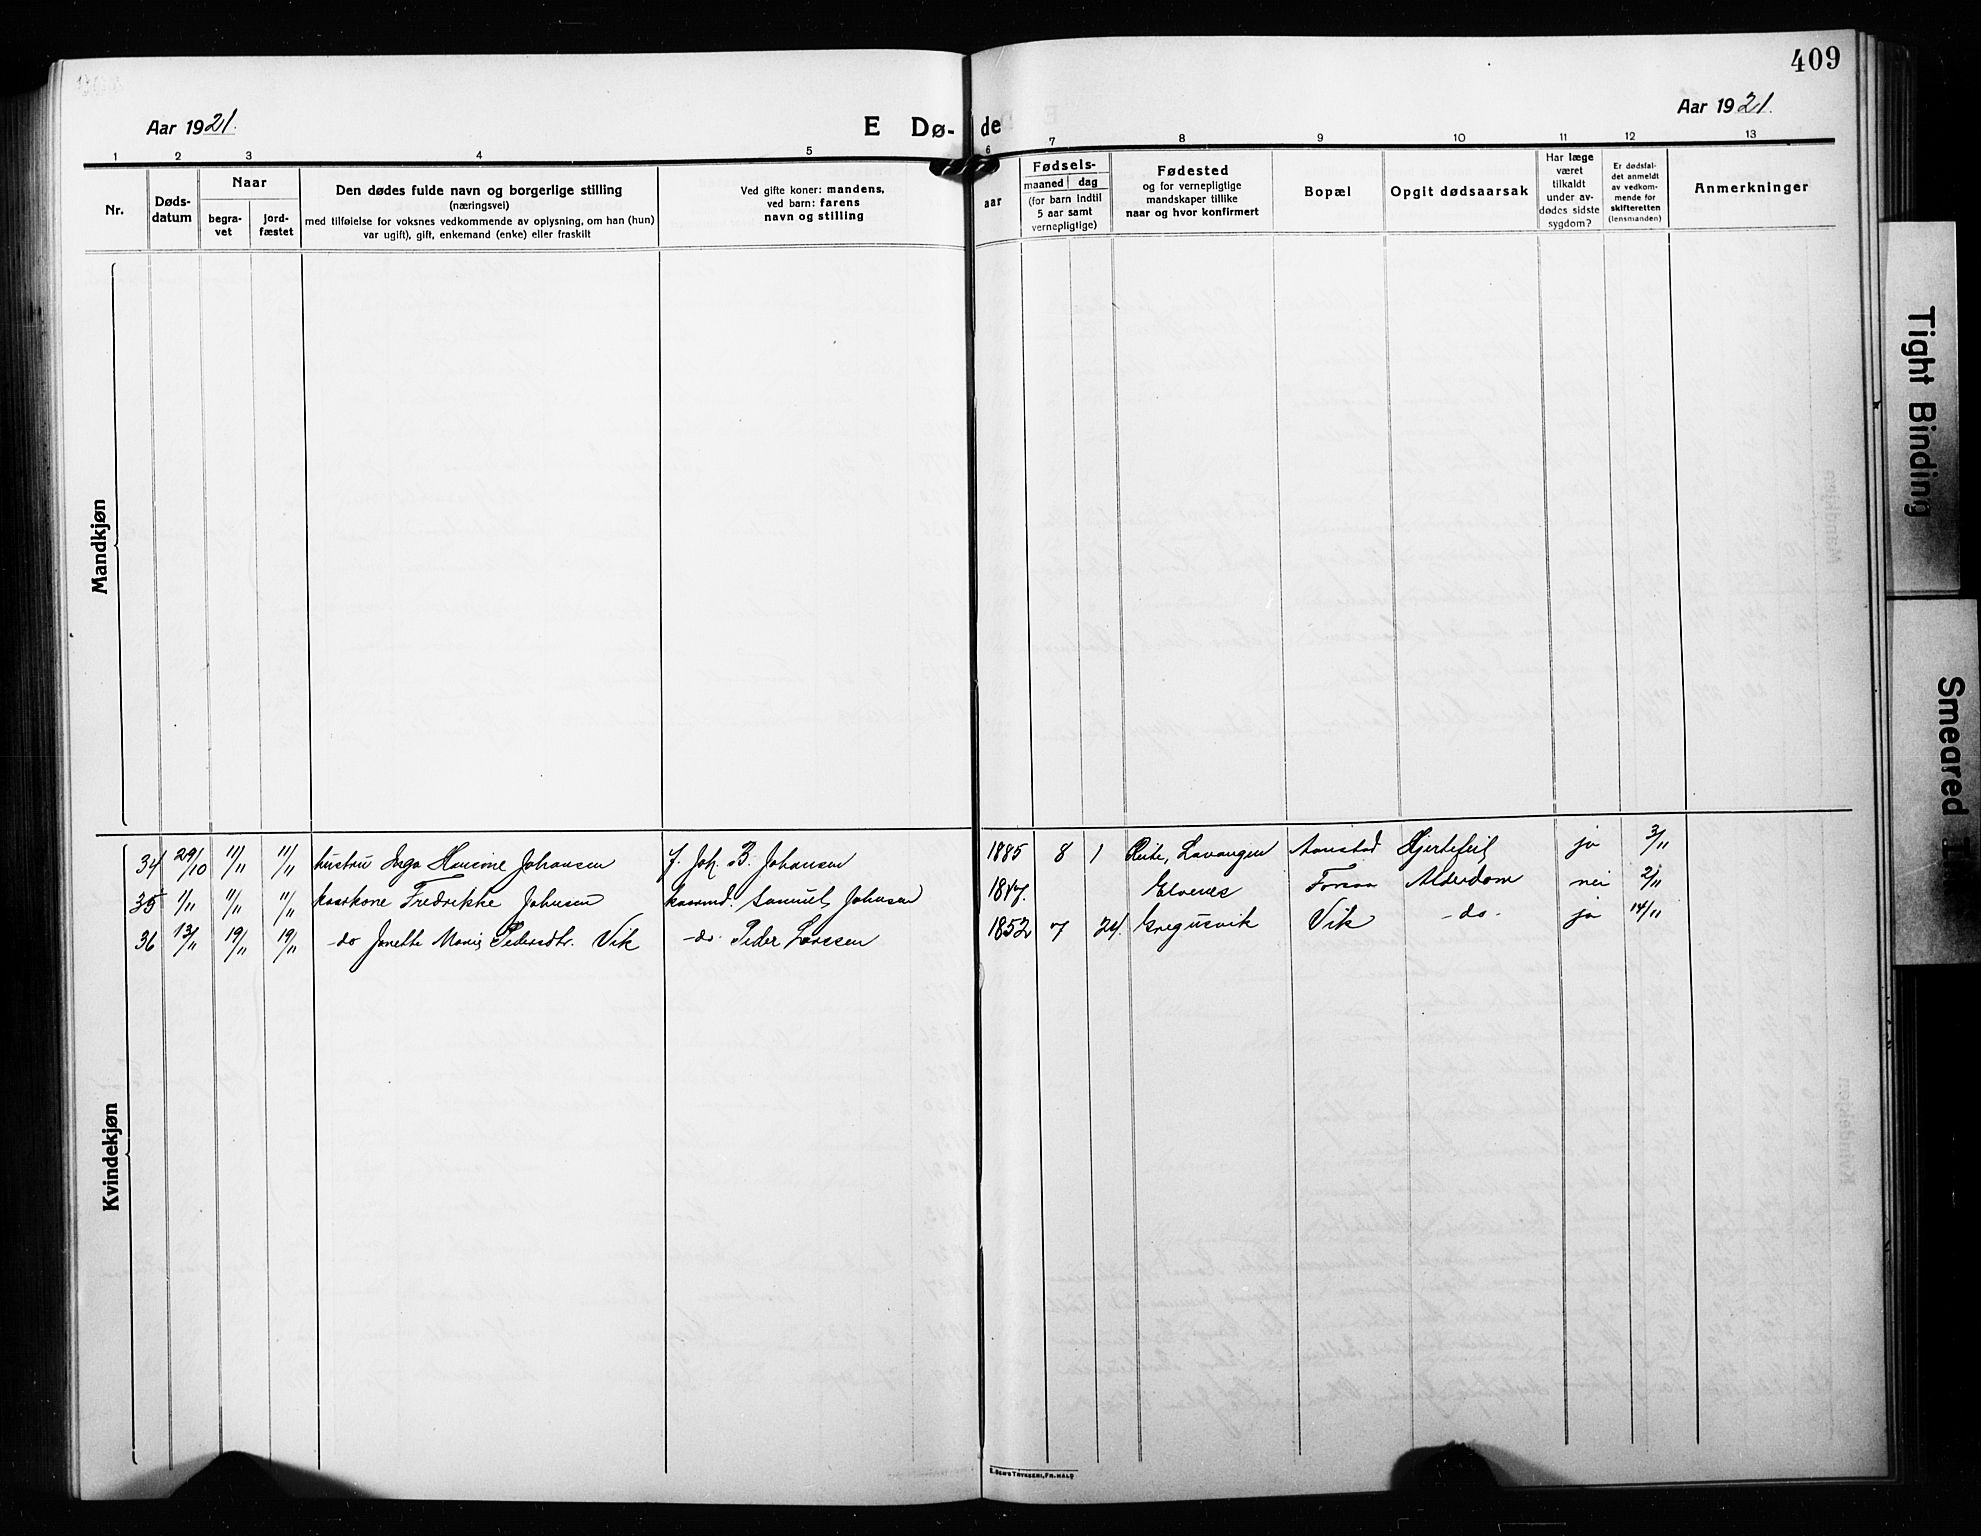 409
Aar 1921.
E Dø- de
Aar 1921.
1 2 3 4 5 6 7 8 9 10 11 12 13
Nr.
Døds-
datum
Naar
begra-
vet
jord-
fæstet
Den dødes fulde navn og borgerlige stilling
(næringsvei)
med tilføielse for voksnes vedkommende av oplysning, om han (hun)
var ugift), gift, enkemand (enke) eller fraskilt
Ved gifte koner: mandens,
ved barn: farens
navn og stilling
aar
Fødsels-
maaned dag
(for barn indtil
5 aar samt
vernepligtige)
Fødested
og for vernepligtige
mandskaper tillike
naar og hvor konfirmert
Bopæl
Opgit dødsaarsak
Har læge
været
tilkaldt
under av-
dødes sidste
sygdom?
Er dødsfal-
det anmeldt
av vedkom-
mende for
skifteretten
(lensmanden)
Anmerkninger
Mandkjøn
Kvindekjøn
34 29/10 11/11 11/11 hustru Inga Hansine Johansen f. Joh. B. Johansen 1885 8 1 Lavangen Aanstad Hjertefeil ja 3/11
35 1/11 11/11 11/11 kaarkone Fredrikke Johnsen kaarmd. Samuel Johnsen Elvenes Forsaa Alderdom nei 2/11
36 13/11 19/11 19/11 -do Janette Marie Pedersdtr. Vik -do- Peder Larssen 1852 7 24. Gregusvik Vik -do- ja 14/11
Tight Binding
Smeared